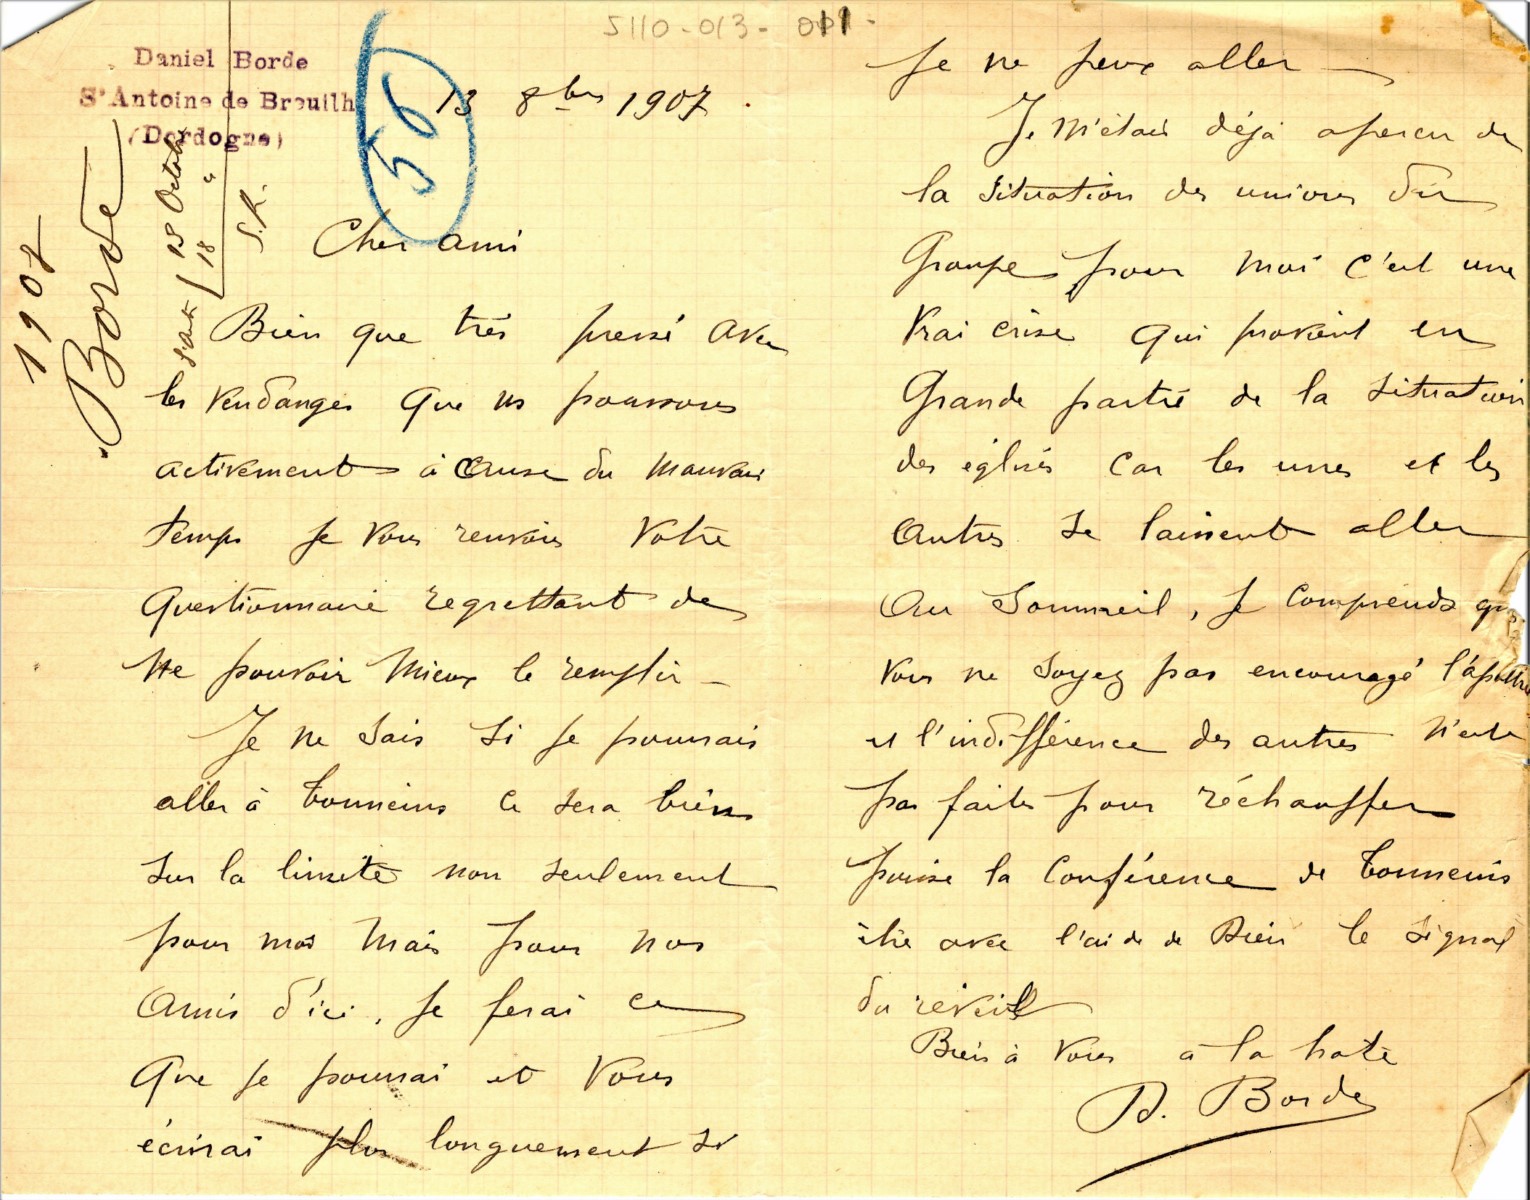 5110-013-011-
Daniel Borde
St Antoine de Breuilh
(Dordogne)
56
13 8bre 1907.
1907
Borde
13 Octob
18 "
S.R.
Cher ami
Bien que très pressé avec
les vendanges que ns poussons
activement à cause du mauvais
temps je vous renvoies votre
questionnaire regrettant de
ne pouvoir mieux le remplir -
Je ne sais si je pourrais
aller à Tonneins ce sera bien
sur la limite non seulement
pour moi mais pour nos
amis d'ici, je ferai ce
que je pourrai et vous
écrirai plus longuement si
je ne peux aller -
Je m'étais déjà apercu de
la situation des unions du
Groupe pour moi c'est une
vrai crise qui provient en
Grande partie de la situation
des églises car les unes et les
autres se laissent aller
au sommeil, je comprends que
vous ne soyez pas encouragé l'apathie
et l'indifférence des autres n'est
pas faites pour réchauffer
puisse la Conférence de Tonneins
être avec l'aide de Dieu le signal
du réveil
Bien à vous à la hate
D. Borde